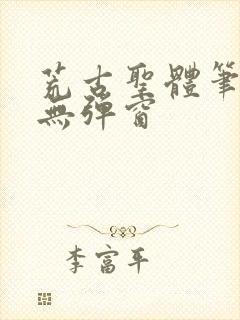 荒古聖體筆
無彈窗
李富平